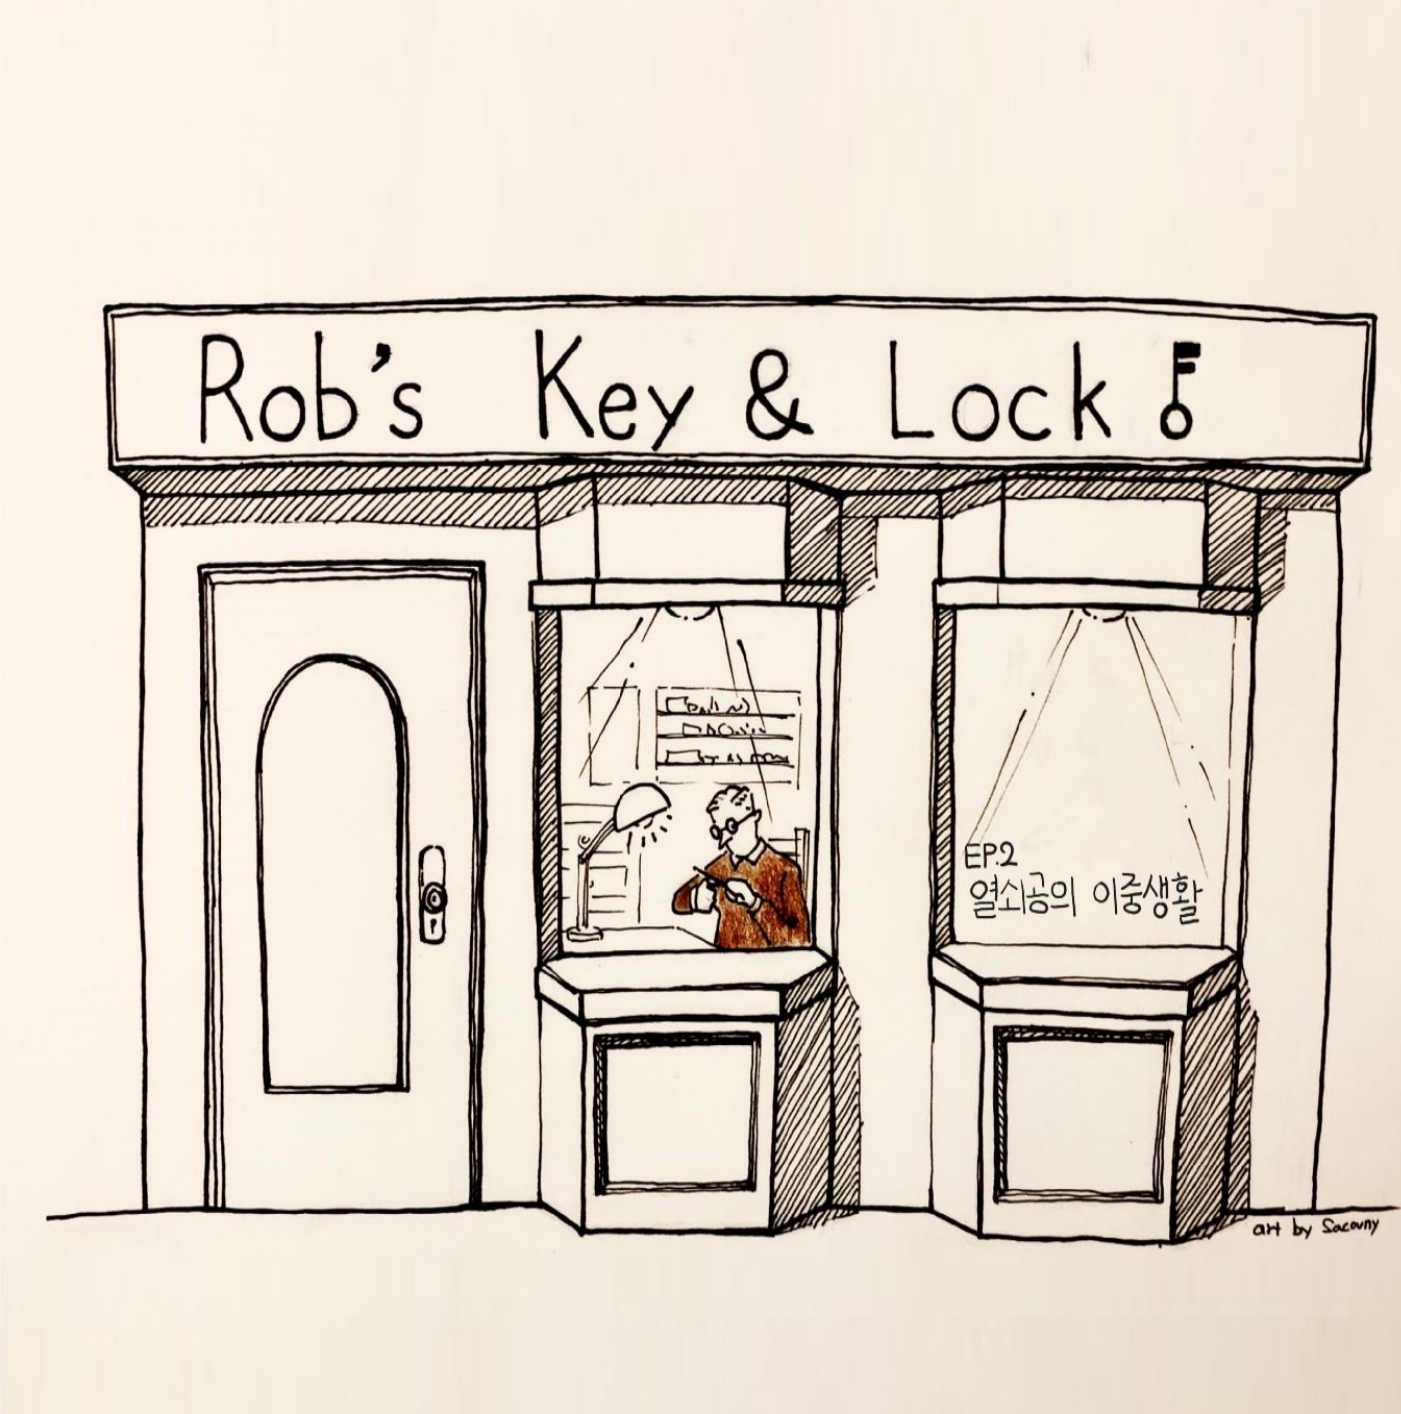 Rob's Key & Lock
EP.2
열쇠공의 이중생활
art by Sacouny